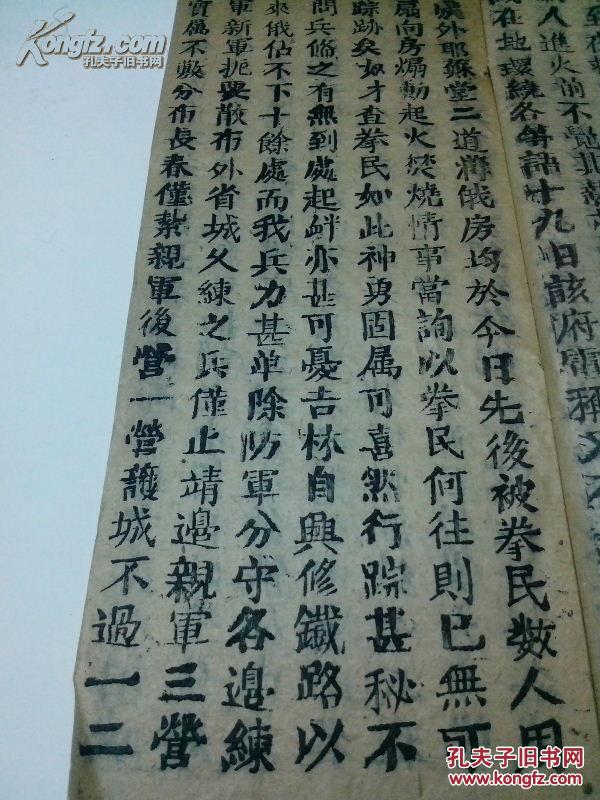 到夜
人進火前不覺
在地環繞各等語十九日該府電稱又
外耶穌堂二道將俄房均於今日先後被拳民數人用
扇向房煽動起火焚燒情事當詢以拳民何往則已無可
踪跡矣如才查拳民如此神勇固属可喜然行踪甚秘不
問兵俻之有無到處起衅亦甚可憂吉林自興修鐵路以
來俄佔不下十餘處而我兵力甚单除防軍分守各邊練
軍新軍扼要散布外省城久練之兵僅止靖邊親軍三營
實属不敷分布長春僅紥親軍後營一營護城不過一二
孔夫子旧书网
www.kongfz.com
孔夫子旧书网
www.kongfz.com